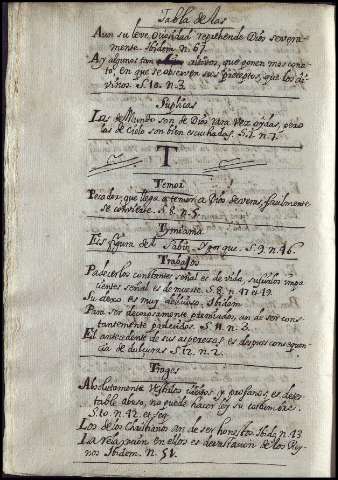 Tabla de las
Aun su leve queldad reprehende Dios severa-
mente. Ibidem n. 67.
Ay algunos tan nidios, que ponen mas cona-
to, en que se observen sus preceptos, que los di-
vinos. S. 10. n. 3.
Suplicas
Las de Mundo son de Dios rara vez oydas, pero
las de Cielo son bien escuchadas. S. 1. n. 7.
T
Temor
Pecador, que llega a temer a Dios deveras, facilmente
se convierte. S. 8. n. 5.
Tymiama
Es figura de Sabin. Y por que. S. 9. n. 46.
Trabajos
Padecerlos constantes señal es de vida, sufrirlos impa-
cientes señal es de muerte. S. 8. n. 17 et 19.
Su dexo es muy delicioso. Ibidem
Para ser decorosamente premiados, an de ser cons-
tantemente padecidos. S. 11. n. 3.
El antecedente de sus asperezas, es dispues consequen-
cia de dulzuras. S. 12. n. 2.
Trages
Absolutamente Vestidos y profanos, es detes-
table abuso, no puede hacer ley su costumbre.
S. 10. n. 42. et seq.
Los de los Christianos an de ser honestos. Ibidem n. 43
La relaxacion en ellos es devastacion de los Rey-
nos Ibidem. n. 51.